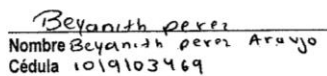 Beyanith perez
Nombre Beyanith perez Araujo
Cédula 1019103469